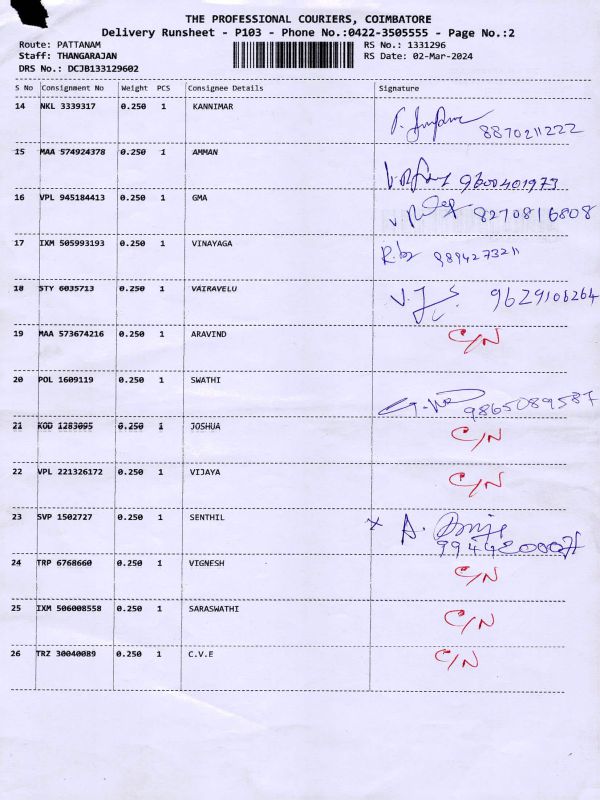 THE PROFESSIONAL COURIERS, COIMBATORE
Delivery Runsheet - P103 - Phone No.:0422-3505555 - Page No.:2
Route: PATTANAM RS No.: 1331296
Staff: THANGARAJAN RS Date: 02-Mar-2024
DRS No.: DCJB133129602
S No Consignment No Weight PCS Consignee Details Signature
14 NKL 3339317 0.250 1 KANNIMAR
8870211222
15 MAA 574924378 0.250 1 AMMAN
9600401973
16 VPL 945184413 0.250 1 GMA
8270816808
17 IXM 505993193 0.250 1 VINAYAGA
9894273211
18 STY 6035713 0.250 1 VAIRAVELU
9629106264
19 MAA 573674216 0.250 1 ARAVIND C/N
20 POL 1609119 0.250 1 SWATHI
9865089587
21 KOD 1283095 0.250 1 JOSHUA C/N
22 VPL 221326172 0.250 1 VIJAYA C/N
23 SVP 1502727 0.250 1 SENTHIL x A.
24 TRP 6768660 0.250 1 VIGNESH C/N
25 IXM 506008558 0.250 1 SARASWATHI C/N
26 TRZ 30040089 0.250 1 C.V.E C/N